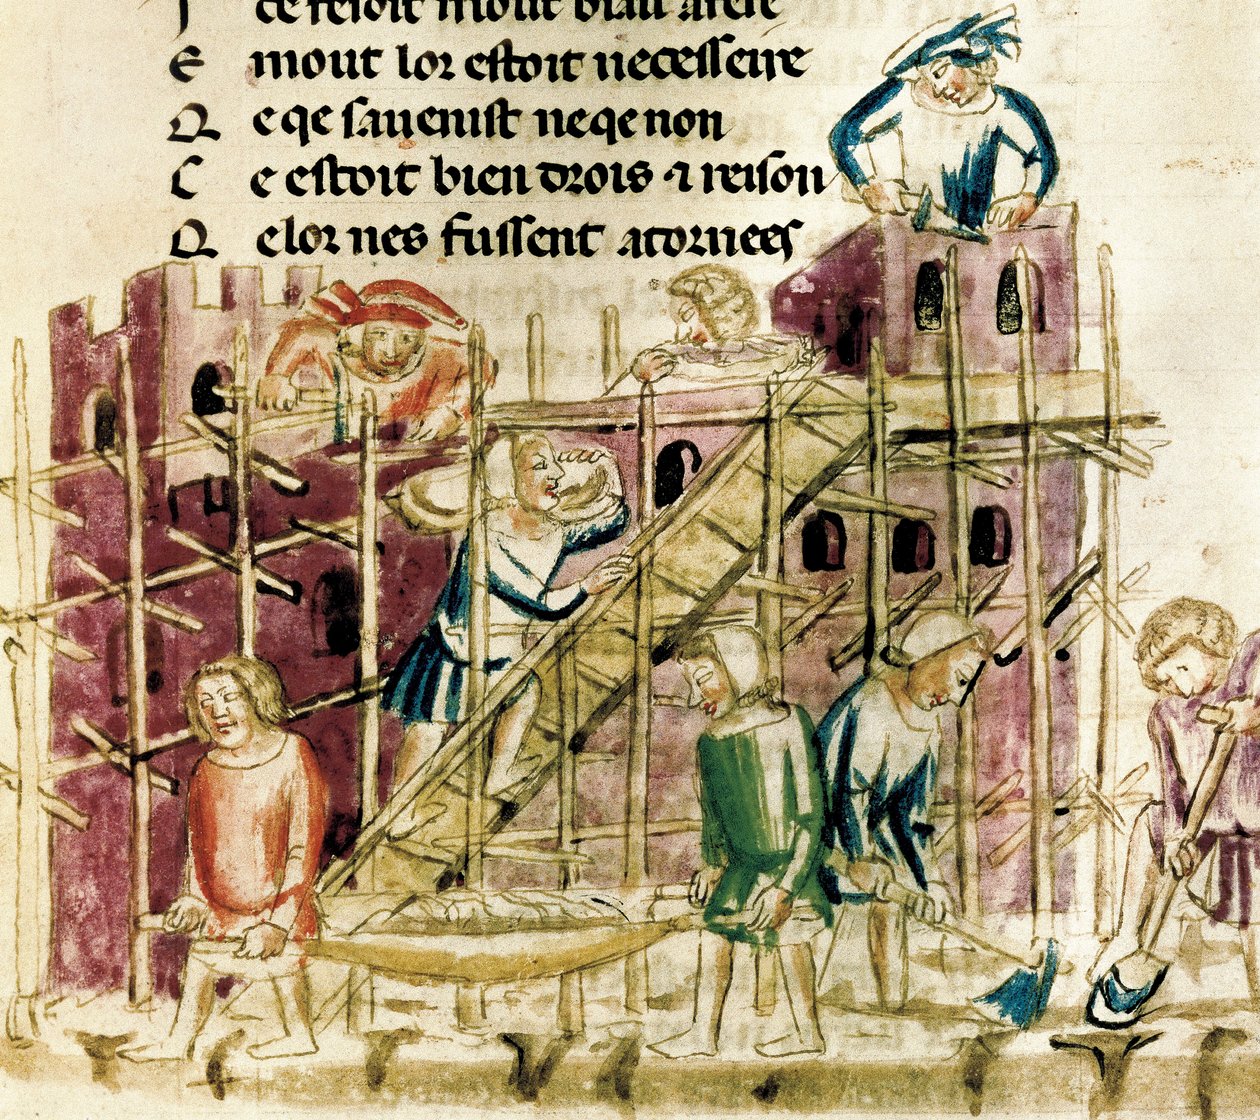 ce fesoit mout biau afere
E mout lor estoit necesseire
Q e qe sauenist ne qe non
C e estoit bien drois ⁊ reison
Q e lor nes fussent atornees